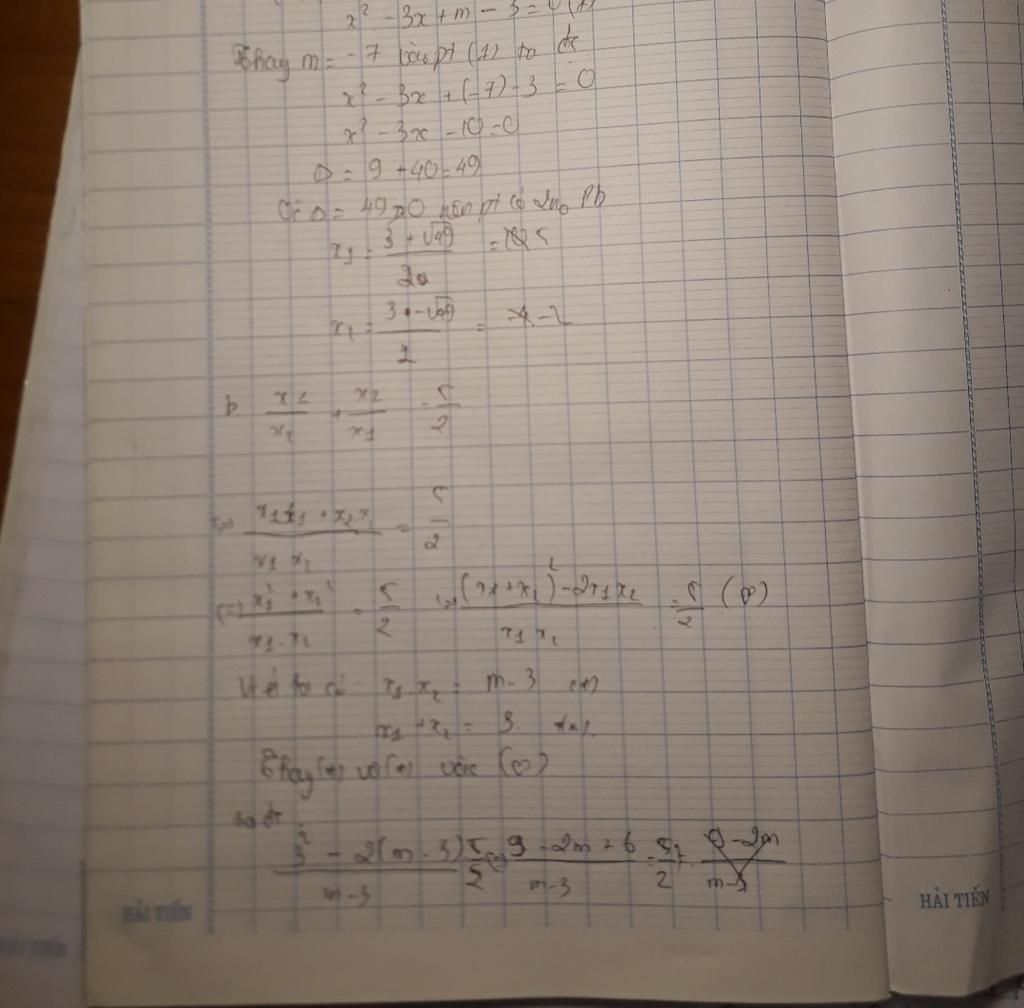 x² - 3x + m - 3 = 0 (1)
Thay m = -7 vào pt (1) ta đc
x² - 3x + (-7) - 3 = 0
x² - 3x - 10 = 0
Δ = 9 + 40 = 49
Vì Δ = 49 > 0 nên pt có 2 no Pb
x1 = (3 + √49)/2a = 5
x1 = (3 - √49)/1 = -2
b. x1/x2 + x2/x1 = 5/2
<=> (x1x1 + x2x)/(x1 x2) = 5/2
<=> (x1² + x2²)/(x1.x2) = 5/2 <=> ((x1+x2)² - 2x1x2)/(x1 x2) = 5/2 (♡)
Viét ta có: x1 x2 = m - 3 (*)
x1 + x2 = 3
Thay (*) và (*) vào (♡)
ta đc
(3² - 2(m - 3))/(m-3) = 5/2 <=> (9 - 2m + 6)/(m-3) = 5/2
HẢI TIẾN
HẢI TIẾN
HẢI TIẾN